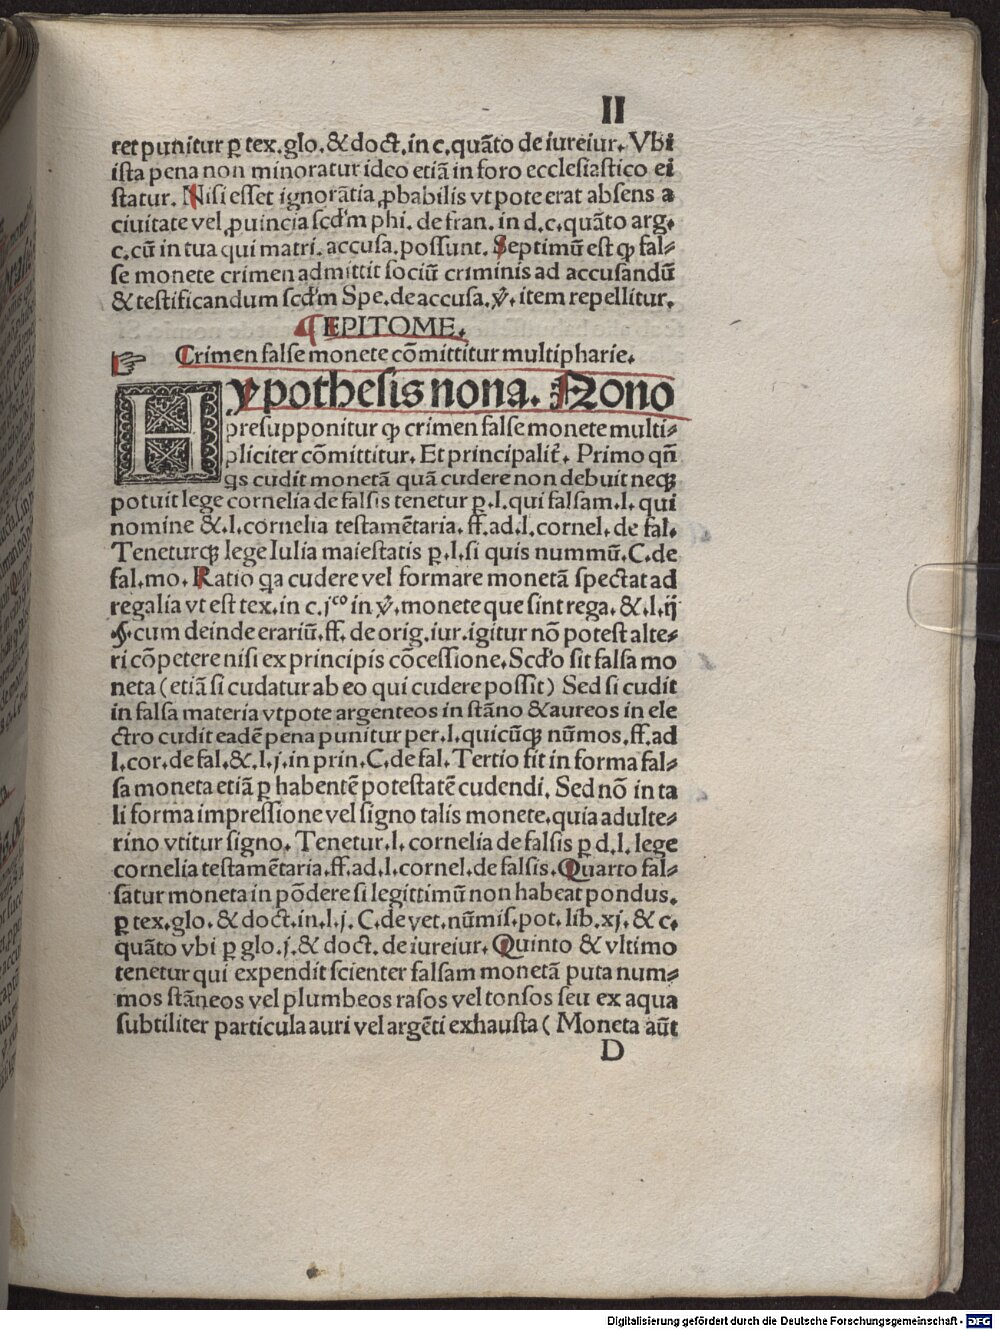 II
ret punitur ꝑ tex. glo. & doct. in c. quãto de iureiur. Vbi
ista pena non minoratur ideo etiã in foro ecclesiastico ei
statur. Nisi esset ignorãtia ꝓbabilis vt pote erat absens a
ciuitate vel ꝓuincia scd'm phi. de fran. in d. c. quãto arg.
c. cũ in tua qui matri. accusa. possunt. Septimũ est ꝙ fal⸗
se monete crimen admittit sociũ criminis ad accusandũ
& testificandum scd'm Spe. de accusa. ℣. item repellitur.
¶EPITOME.
☞ Crimen false monete cõmittitur multipharie.
Hypothesis nona. Nono
presupponitur ꝙ crimen false monete multi⸗
pliciter cõmittitur. Et principalit̃. Primo qñ
qs cudit monetã quã cudere non debuit neqꝫ
potuit lege cornelia de falsis tenetur ꝑ. l. qui falsam. l. qui
nomine &. l. cornelia testamẽtaria. ff. ad. l. cornel. de fal.
Teneturqꝫ lege Iulia maiestatis ꝑ. l. si quis nummũ. C. de
fal. mo. Ratio qa cudere vel formare monetã spectat ad
regalia vt est tex. in c. j^co in ℣. monete que sint rega. &. l. ij
.§. cum deinde erariũ. ff. de orig. iur. igitur nõ potest alte⸗
ri cõpetere nisi ex principis cõcessione. Scd'o sit falsa mo
neta (etiã si cudatur ab eo qui cudere possit) Sed si cudit
in falsa materia vtpote argenteos in stãno & aureos in ele
ctro cudit eadẽ pena punitur per. l. quicũqꝫ nũmos. ff. ad
l. cor. de fal. &. l. j. in prin. C. de fal. Tertio fit in forma fal⸗
sa moneta etiã ꝑ habentẽ potestatẽ cudendi. Sed nõ in ta
li forma impressione vel signo talis monete, quia adulte⸗
rino vtitur signo. Tenetur. l. cornelia de falsis ꝑ d. l. lege
cornelia testamẽtaria. ff. ad. l. cornel. de falsis. Quarto fal⸗
satur moneta in põdere si legittimũ non habeat pondus.
ꝑ tex. glo. & doct. in. l. j. C. de vet. nũmis. pot. lib. xj. & c.
quãto vbi ꝑ glo. j. & doct. de iureiur. Quinto & vltimo
tenetur qui expendit scienter falsam monetã puta num⸗
mos stãneos vel plumbeos rasos vel tonsos seu ex aqua
subtiliter particula auri vel argẽti exhausta (Moneta aũt
D
Digitalisierung gefördert durch die Deutsche Forschungsgemeinschaft - DFG